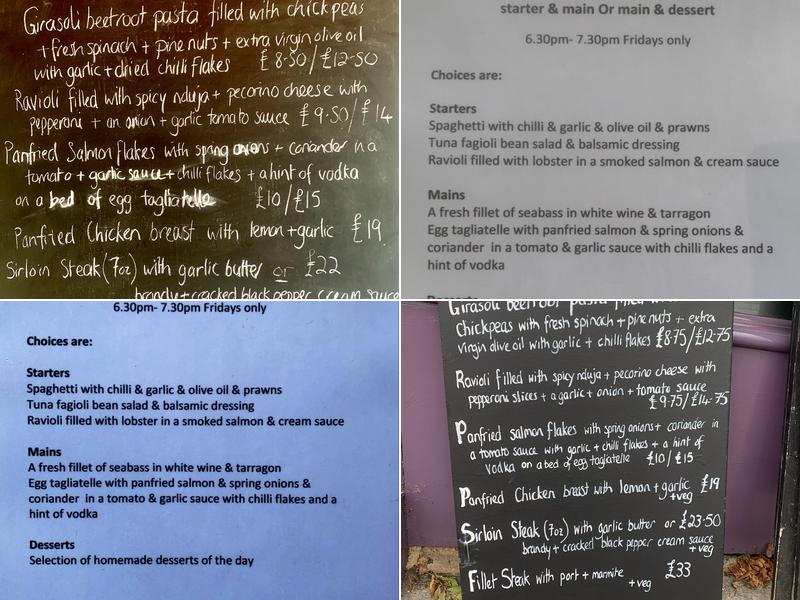 Girasoli beetroot pasta filled with chickpeas
+ fresh spinach + pine nuts + extra virgin olive oil
with garlic + dried chilli flakes £8-50/£12-50
Ravioli filled with spicy nduja + pecorino cheese with
pepperoni + an onion + garlic tomato sauce £9-50/£14
Panfried Salmon flakes with spring onions + coriander in a
tomato + garlic sauce + chilli flakes + a hint of vodka
on a bed of egg tagliatelle £10/£15
Panfried Chicken breast with lemon + garlic £19
Sirloin Steak (7oz) with garlic butter or £22
brandy + cracked black pepper cream sauce
starter & main Or main & dessert
6.30pm- 7.30pm Fridays only
Choices are:
Starters
Spaghetti with chilli & garlic & olive oil & prawns
Tuna fagioli bean salad & balsamic dressing
Ravioli filled with lobster in a smoked salmon & cream sauce
Mains
A fresh fillet of seabass in white wine & tarragon
Egg tagliatelle with panfried salmon & spring onions &
coriander in a tomato & garlic sauce with chilli flakes and a
hint of vodka
6.30pm- 7.30pm Fridays only
Choices are:
Starters
Spaghetti with chilli & garlic & olive oil & prawns
Tuna fagioli bean salad & balsamic dressing
Ravioli filled with lobster in a smoked salmon & cream sauce
Mains
A fresh fillet of seabass in white wine & tarragon
Egg tagliatelle with panfried salmon & spring onions &
coriander in a tomato & garlic sauce with chilli flakes and a
hint of vodka
Desserts
Selection of homemade desserts of the day
Girasoli beetroot pasta filled
chickpeas with fresh spinach + pine nuts + extra
virgin olive oil with garlic + chilli flakes £8-75/£12-75
Ravioli filled with spicy nduja + pecorino cheese with
pepperoni slices + a garlic + onion + tomato sauce
£9-75/£14-75
Panfried salmon flakes with spring onions + coriander in
a tomato sauce with garlic + chilli flakes + a hint of
vodka on a bed of egg tagliatelle £10/£15
Panfried Chicken breast with lemon + garlic £19
+veg
Sirloin Steak (7oz) with garlic butter or £23-50
brandy + cracked black pepper cream sauce
+veg
Fillet Steak with port + marmite £33
+veg